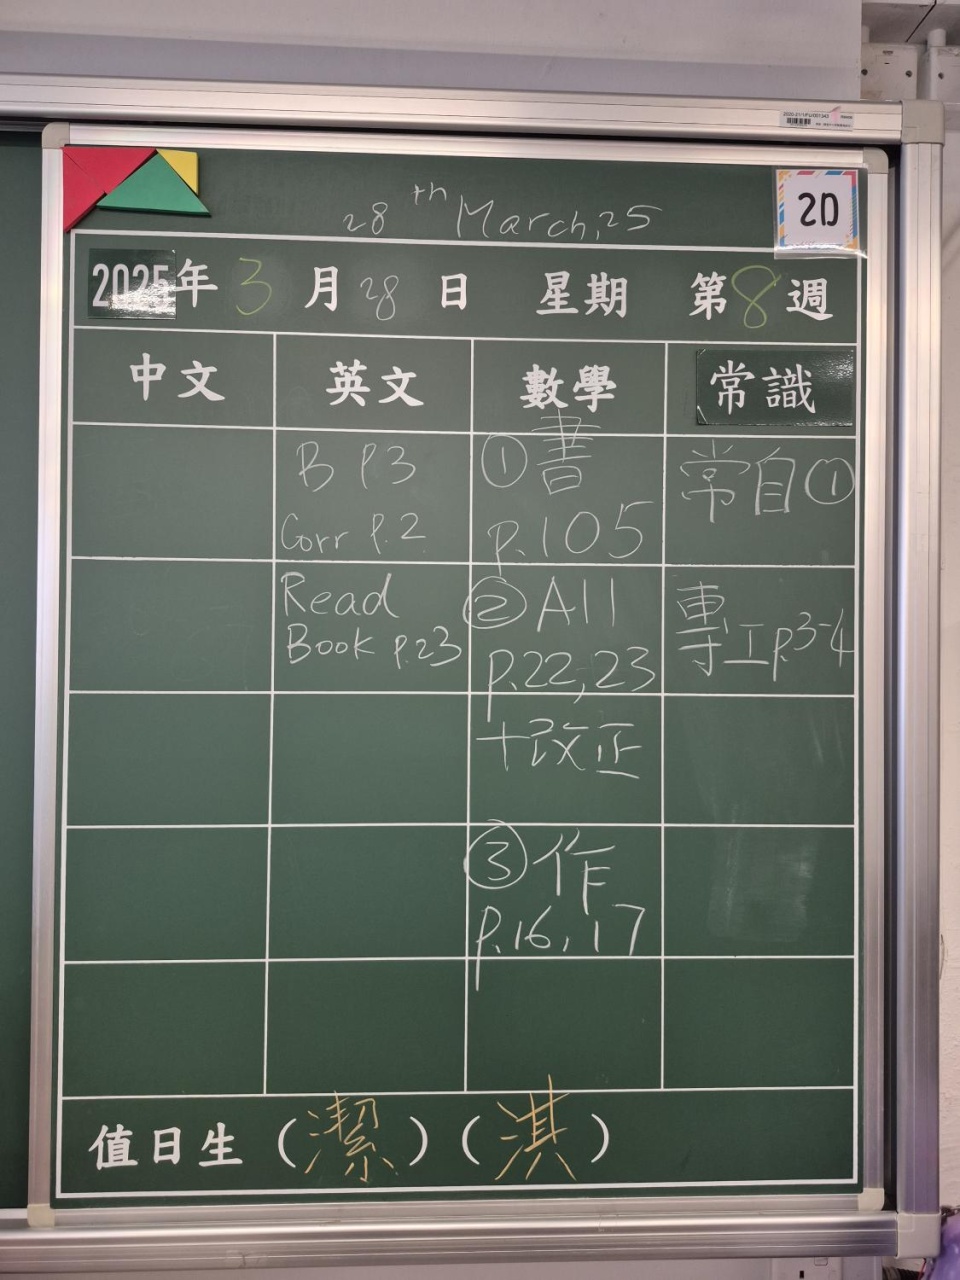 28th March, 25
2D
2025年 3 月 28 日 星期 第 8 週
中文 英文 數學 常識
B P.3
Corr P.2
① 書
p.105
常自①
Read
Book p.23
② All
p.22, 23
+改正
專工p.3-4
③ 作
p.16, 17
值日生 (潔) (淇)